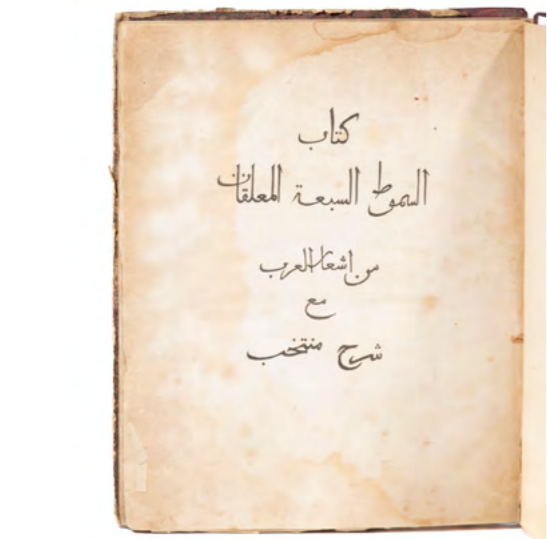 كتاب
السموط السبعة المعلقات
من اشعار العرب
مع
شرح منتخب